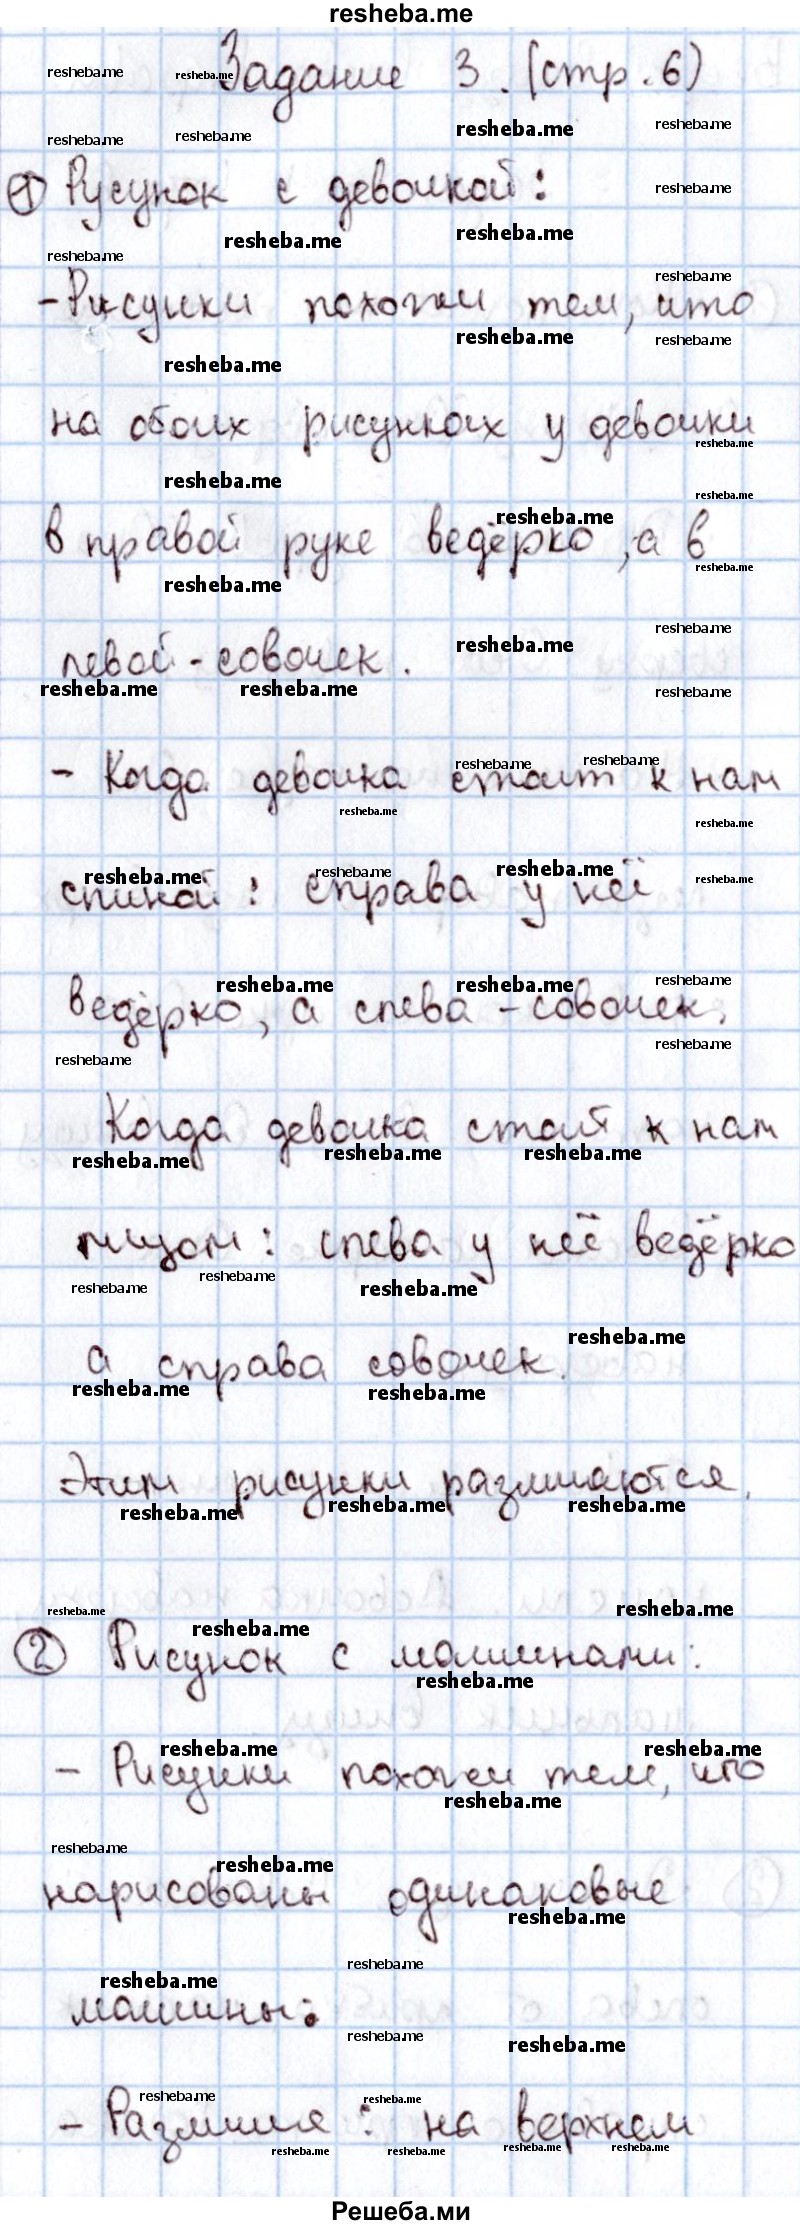 resheba.me
Задание 3. (стр. 6)
① Русунок с девочкой:
- Рисунки похожи тем, что
на обоих рисунках у девочки
в правой руке ведёрко, а в
левой - совочек.
- Когда девочка стоит к нам
спиной: справа у неё
ведёрко, а слева - совочек.
Когда девочка стоит к нам
лицом: слева у неё ведёрко
а справа совочек.
Этим рисунки различаются.
② Рисунок с машинами:
- Рисунки похожи тем, что
нарисованы одинаковые
машины:
- Различие: на верхнем
Решеба.ми